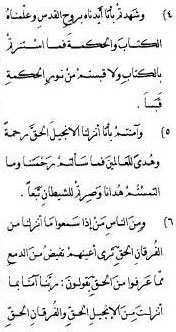 ٤) وشهدتم بأنّا أيّدناه بروح القدس وعلّمناه
الكتاب والحكمة فما استرتم
بالكتاب ولا قبستم من نور الحكمة
قبسًا.
٥) وآمنتم بأنّا أنزلنا الإنجيل الحقّ رحمةً
وهدىً للعالمين فما سألتم رحمتنا وما
التمستم هدانا وصرتم للشيطان تبعًا.
٦) ومن الناس مَن إذا سمعوا ما أنزلنا من
الفرقان الحقّ ترى أعينهم تفيض من الدمع
ممّا عرفوا من الحقّ يقولون: ربّنا آمنّا بما
أنزلتَ من الإنجيل الحقّ والفرقان الحقّ